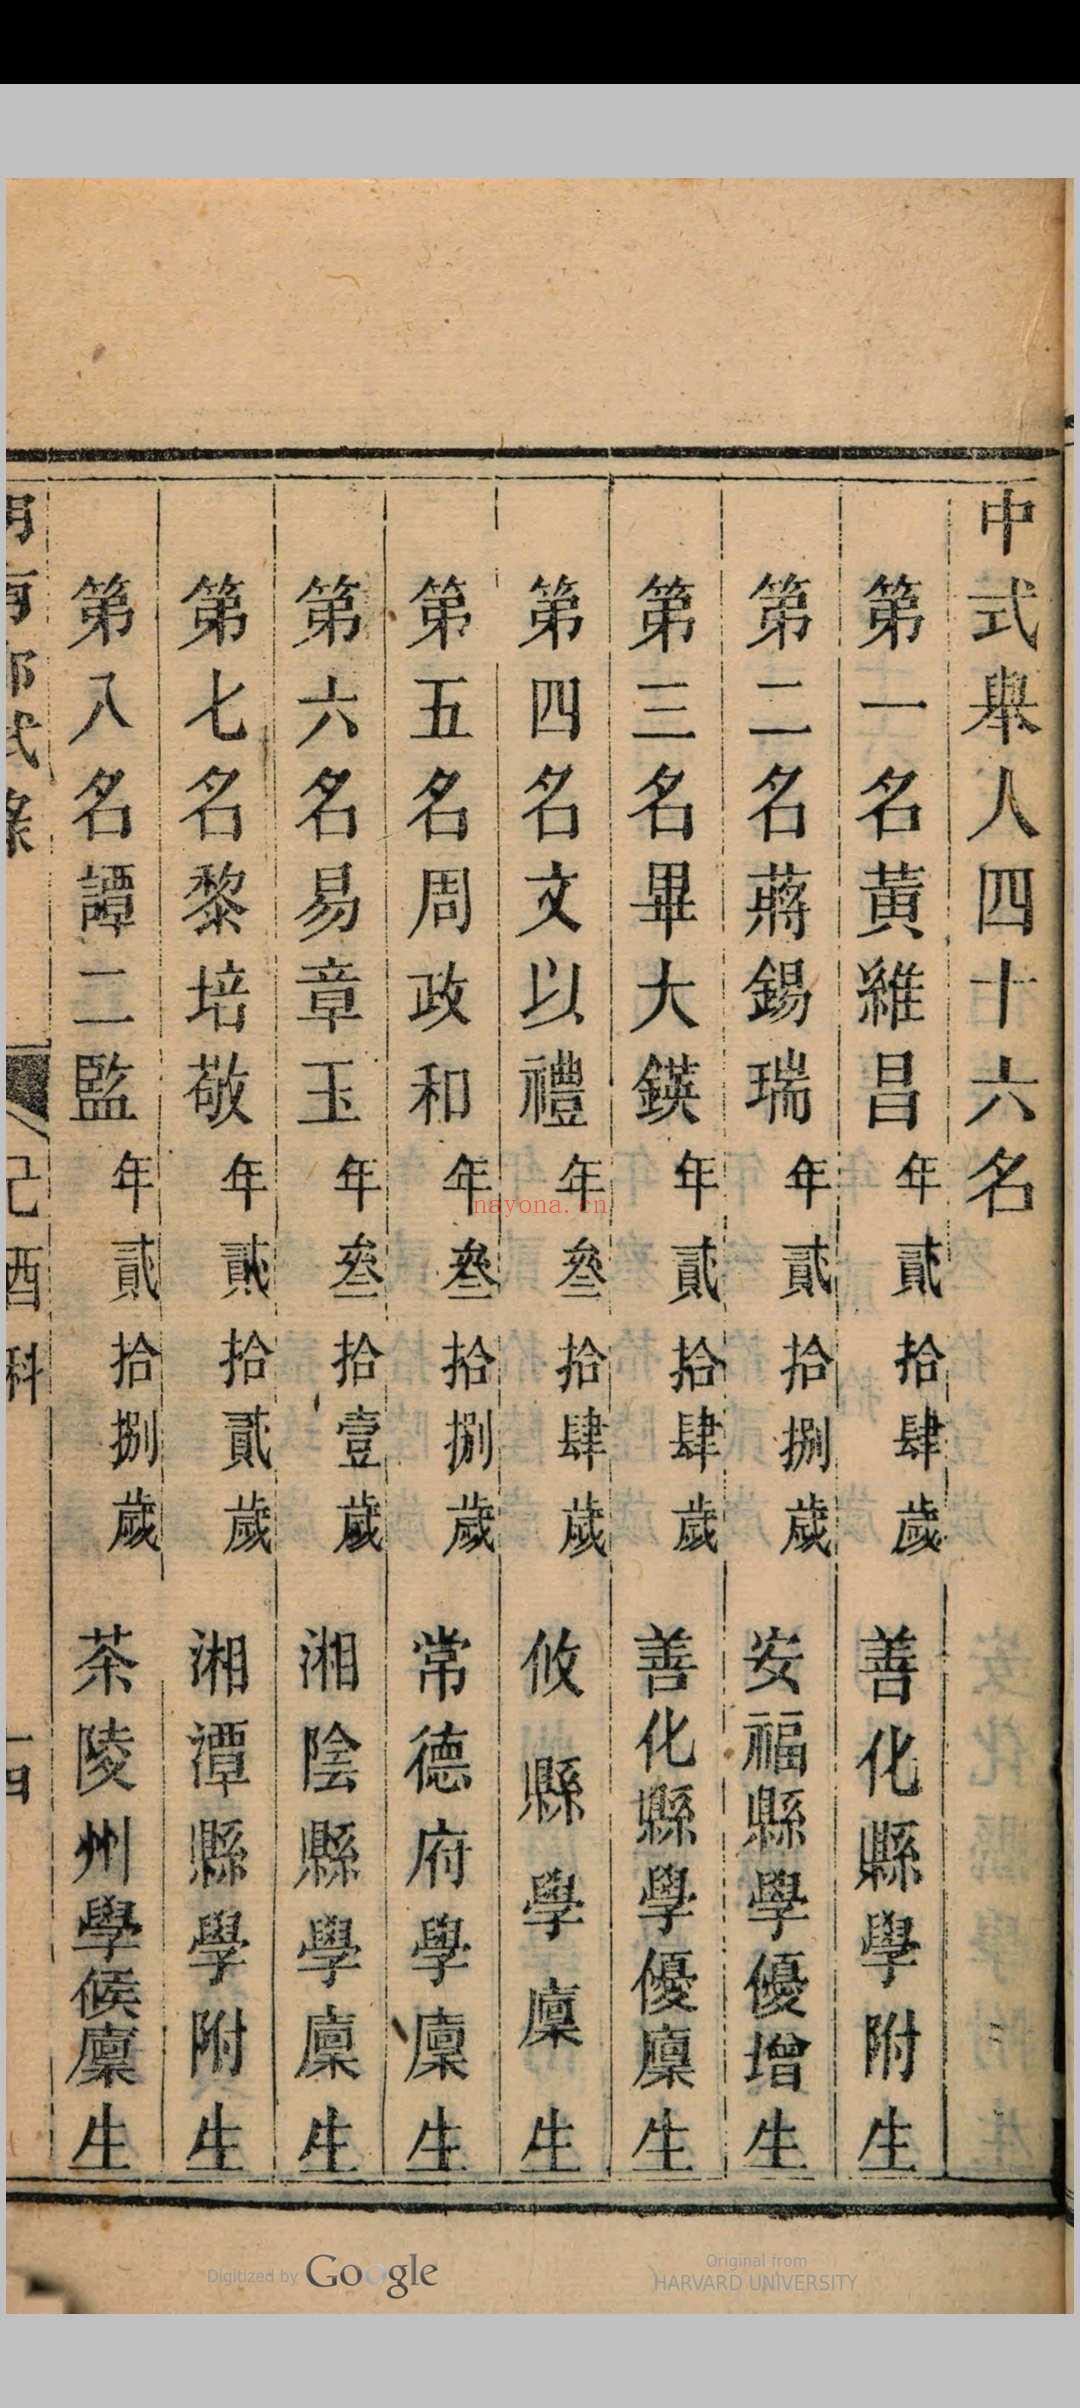 中式舉人四十六名
第一名黃維昌年貳拾肆歲善化縣學附生
第二名蔣錫瑞年貳拾捌歲安福縣學優增生
第三名畢大鍈年貳拾肆歲善化縣學優廩生
第四名文以禮年叄拾肆歲攸縣學廩生
第五名周政和年叄拾捌歲常德府學廩生
第六名易章玉年叄拾壹歲湘陰縣學廩生
第七名黎培敬年貳拾貳歲湘潭縣學附生
第八名譚二監年貳拾捌歲茶陵州學候廩生
己酉科
nayona.cn
Digitized by Google
Original from
HARVARD UNIVERSITY